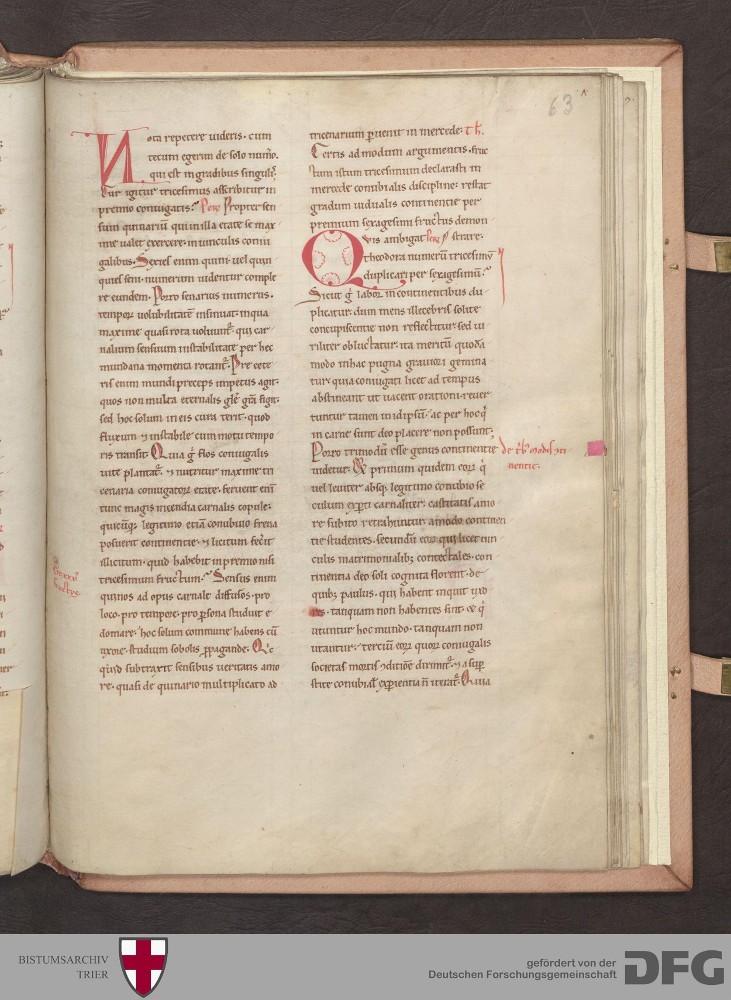 63
Nota repetere uideris. cum
tecum egerim de solo num̅o.
qui est in gradibus singuli?
Cur igitur tricesimus asscribitur in
premio coniugatis? Per̅ Propter sen
sum quinariu̅ qui in illa etate se max
ime ualet exercere in uinculis coniu
galibus. Sexies enim quini. uel quin
quies seni. numerum uidentur comple
re eundem. Porro senarius numerus.
tempor̅ uolubilitate̅ insinuat. in qua
maxime quasi rota uoluunt̅. qui car
nalium sensuum instabilitate per hec
mundana momenta rotant̅. Pre cete
ris enim mundi preceps impetus agit.
quos non multa eternalis gl̅e gr̅a figit.
sed hoc solum in eis cura terit. quod
fluxum & instabile cum motu tempo
ris transit. Quia g̅ flos coniugalis
uite plantat̅. & nutritur maxime tri
cenaria coniugator̅ etate. feruent eni̅
tunc magis incendia carnalis copule.
quicu̅q; legitimo etia̅ conubiuo frena
posuerit continentie. & licitum fecit
illicitum. quid habebit in premio nisi
tricesimum fructum? Sensus enim
quinos ad opus carnale diffusos. pro
loco. pro tempore. pro p̱sona studuit e
domare. hoc solum commune habens cu̅
uxore. studium sobolis p̱pagande. Qc̅
quid subtraxit sensibus ueritatis amo
re. quasi de quinario multiplicato ad
tricenarium p̱uenit in mercede. th̅.
Certis admodum argumentis. fruc
tum istum tricesimum declarasti in
mercede conubialis discipline. restat
gradum uidualis continentie per
premium sexagesimi fructus demon
Quis ambigat Per̅ strare.
theodora numeru̅ tricesimu̅
duplicari per sexagesimu̅?
Sicut g̅ labor in continentibus du
plicatur. dum mens illecebris solite
concupiscentie non reflectitur. sed ui
riliter obluctatur. ita meritu̅ quoda̅
modo in hac pugna grauiori gemina
tur. quia coniugati licet ad tempus
abstineant ut uacent orationi. reuer
tuntur tamen in idipsu̅. ac per hoc q̇
in carne sunt deo placere non possunt.
Porro trimodu̅ esse genus continentie
uidetur. Et primum quidem eor̅ q̇
uel leuiter absq; legitimo conubio se
culum expti carnaliter. castitatis amo
re subito retrahuntur. a modo continen
tie studentes. secundu̅ eor̅ qui licet uin
culis matrimonialib; contectales. con
tinentia deo soli cognita florent. de
quib; paulus. qui habent inquit uxo
res. tanquam non habentes sint. & q̇
utuntur hoc mundo. tanquam non
utantur. tercium eor̅ quor̅ coniugalis
societas mortis 9ditio̅e dirimit̅. & a sup̱
stite conubial̅ exp̱ientia n̅ iterat̅. Quia
de trib; modis 9ti
nentie.
BISTUMSARCHIV
TRIER
gefördert von der
Deutschen Forschungsgemeinschaft
DFG